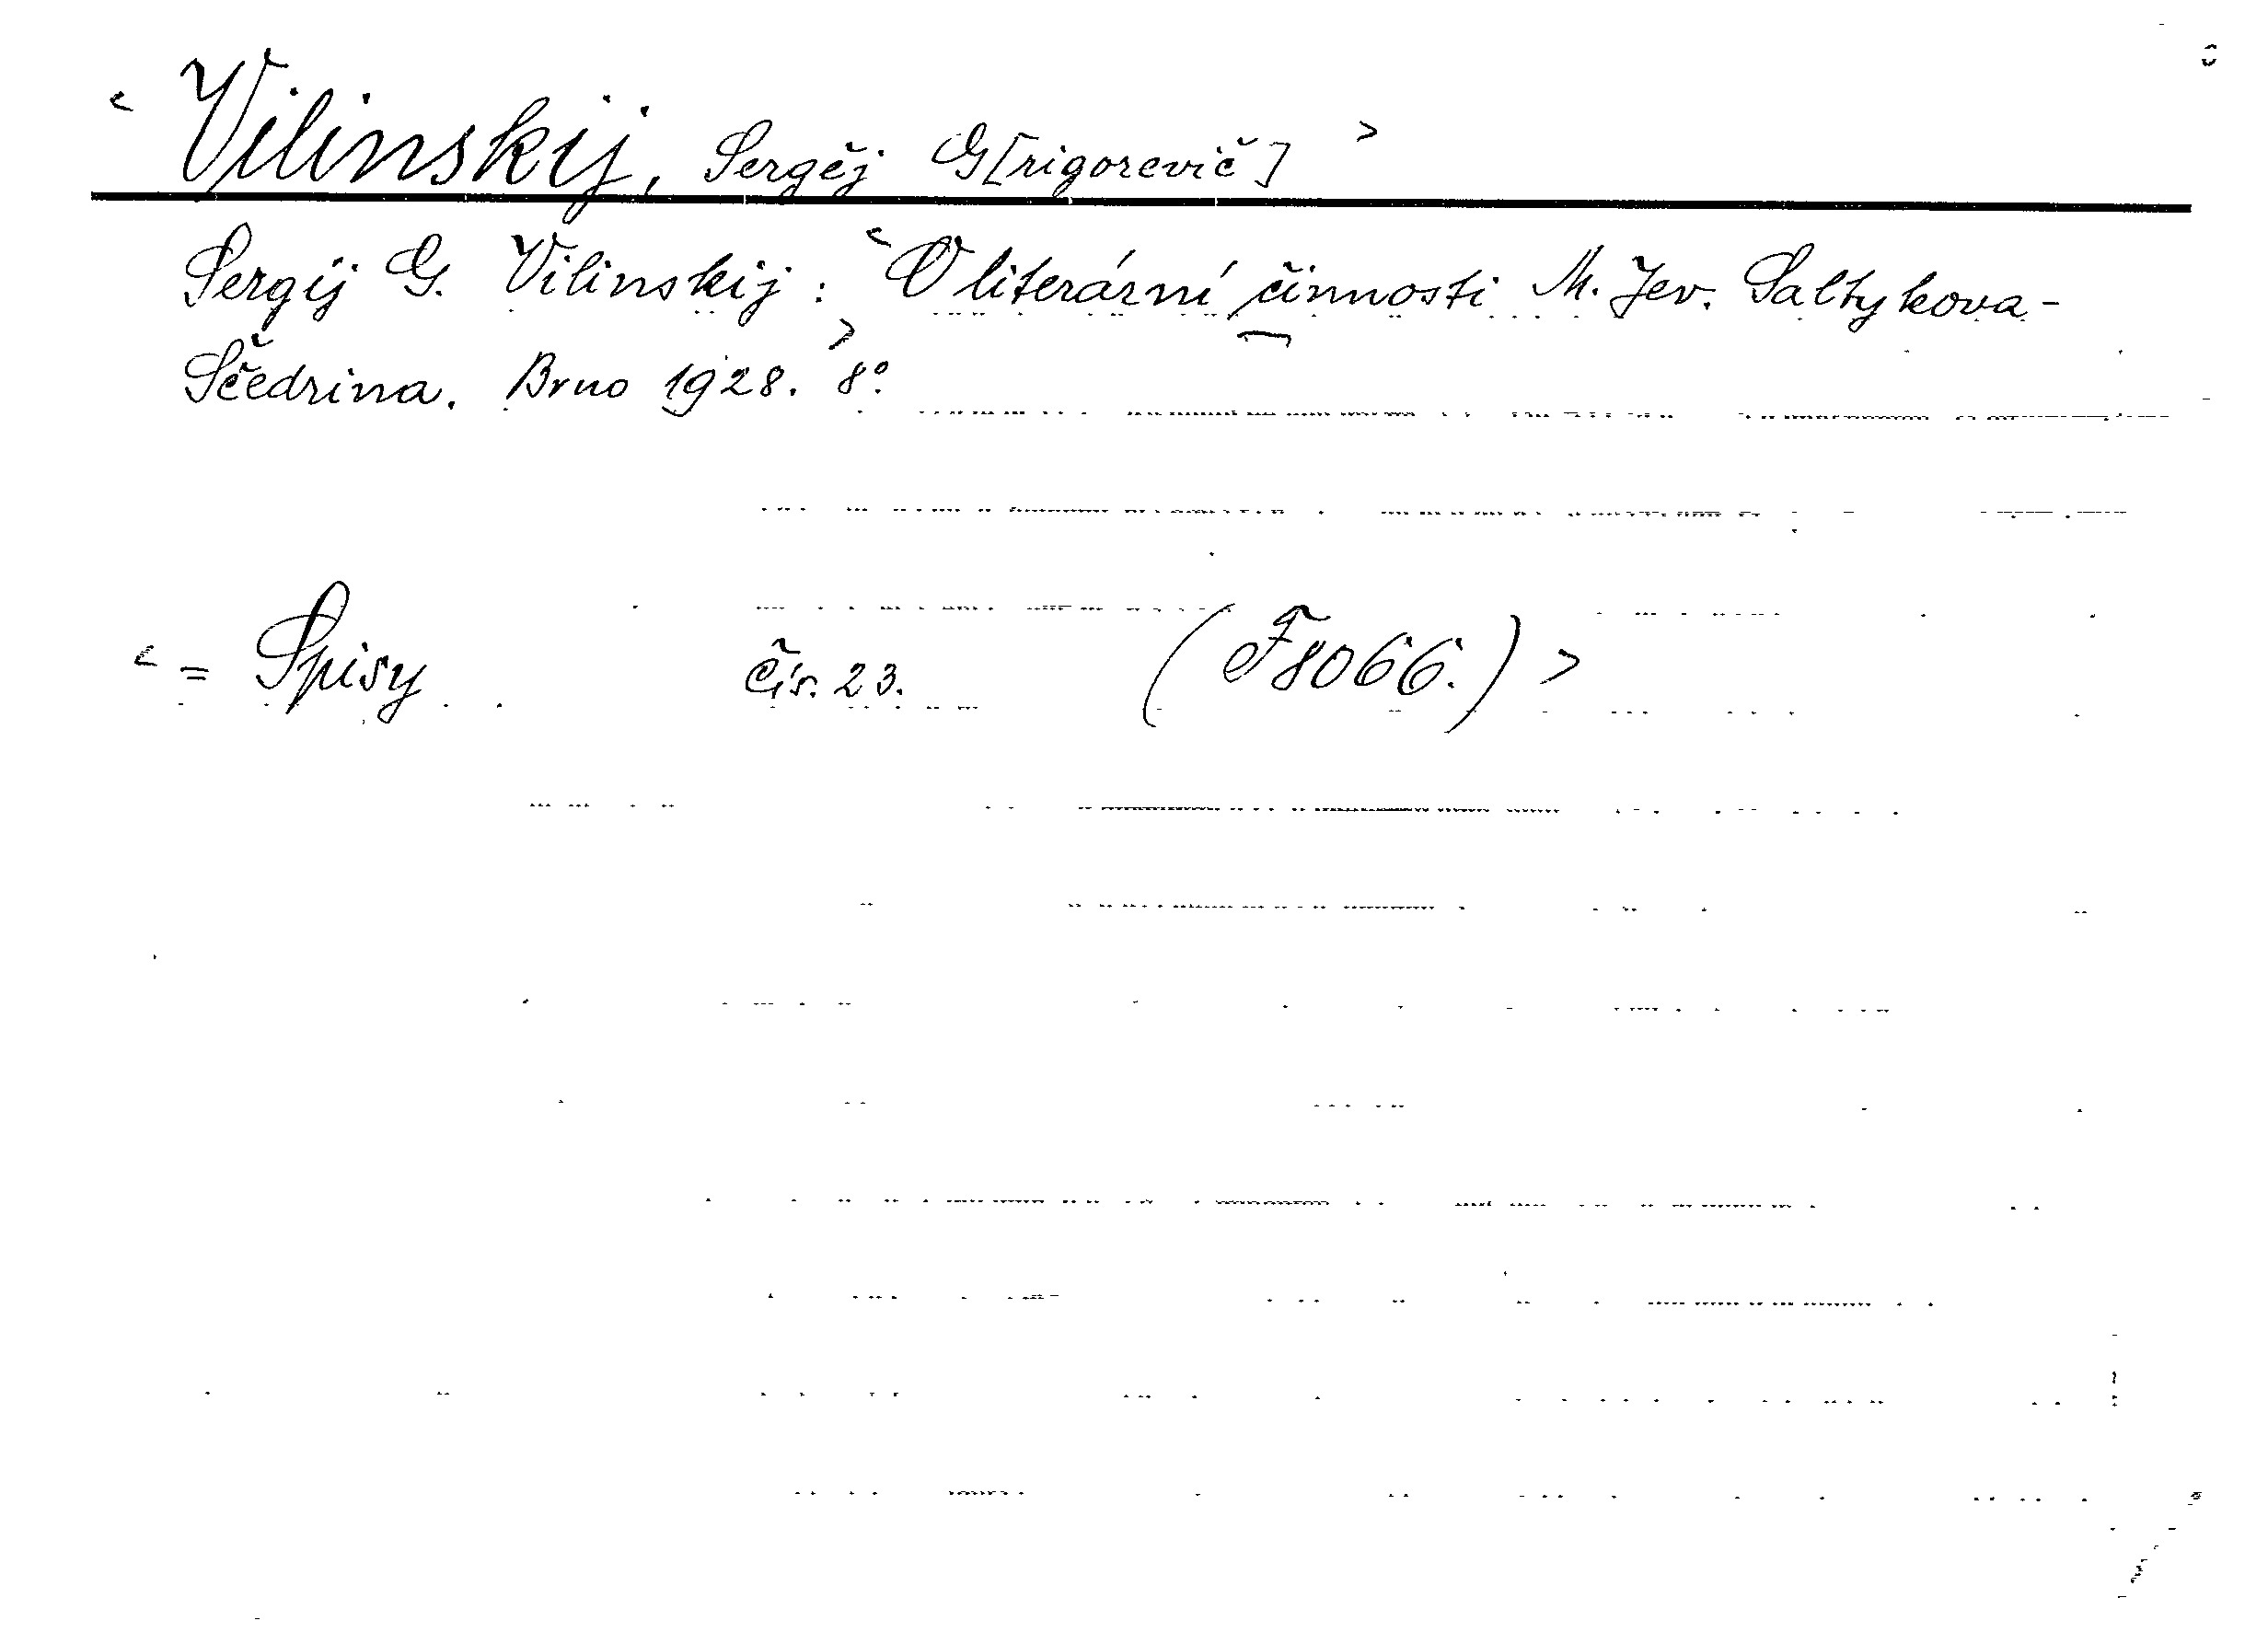 < Vilinskij, Sergěj G[rigorevič] >
Sergij G. Vilinskij: < O literární činnosti M. Jev. Saltykova-
Ščedrina. Brno 1928. > 8°.
< = Spisy čís. 23. (F8066.) >